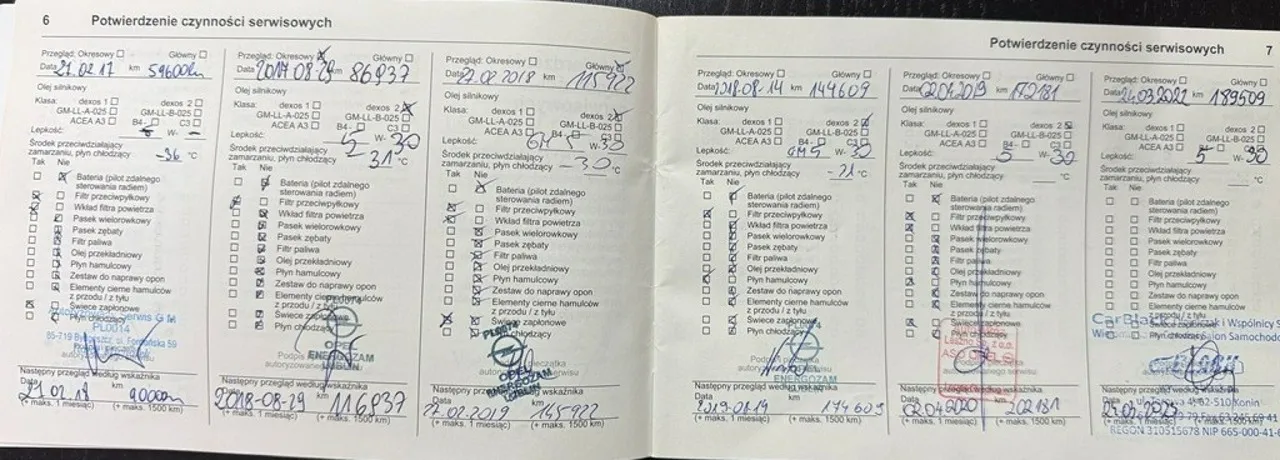 6 Potwierdzenie czynności serwisowych
Przegląd: Okresowy Główny
Data 21.02.17 km 59600km
Olej silnikowy
Klasa: dexos 1 dexos 2
GM-LL-A-025 GM-LL-B-025
ACEA A3 B4- C3
Lepkość: W- –
Środek przeciwdziałający
zamarzaniu, płyn chłodzący -36 °C
Tak Nie
Bateria (pilot zdalnego
sterowania radiem)
Filtr przeciwpyłkowy
Wkład filtra powietrza
Pasek wielorowkowy
Pasek zębaty
Filtr paliwa
Olej przekładniowy
Płyn hamulcowy
Zestaw do naprawy opon
Elementy cierne hamulców
z przodu / z tyłu
Świece zapłonowe
Płyn chłodzący
PL0014
Następny przegląd według wskaźnika
Data km
21.02.18 90000km
(+ maks. 1 miesiąc) (+ maks. 1500 km)
Przegląd: Okresowy Główny
Data 2017-08-29 km 86937
Olej silnikowy
Klasa: dexos 1 dexos 2
GM-LL-A-025 GM-LL-B-025
ACEA A3 B4- C3
Lepkość: 5 W- 30
Środek przeciwdziałający
zamarzaniu, płyn chłodzący 31 °C
Tak Nie
Bateria (pilot zdalnego
sterowania radiem)
Filtr przeciwpyłkowy
Wkład filtra powietrza
Pasek wielorowkowy
Pasek zębaty
Filtr paliwa
Olej przekładniowy
Płyn hamulcowy
Zestaw do naprawy opon
Elementy cierne hamulców
z przodu / z tyłu
Świece zapłonowe
Płyn chłodzący
PL0014
OPEL
ENERGOZAM
LUBLIN
Następny przegląd według wskaźnika
Data km
2018-08-29 116937
(+ maks. 1 miesiąc) (+ maks. 1500 km)
Przegląd: Okresowy Główny
Data 27.02.2018 km 115922
Olej silnikowy
Klasa: dexos 1 dexos 2
GM-LL-A-025 GM-LL-B-025
ACEA A3 B4 C3
Lepkość: GM 5 W- 30
Środek przeciwdziałający
zamarzaniu, płyn chłodzący -30 °C
Tak Nie
Bateria (pilot zdalnego
sterowania radiem)
Filtr przeciwpyłkowy
Wkład filtra powietrza
Pasek wielorowkowy
Pasek zębaty
Filtr paliwa
Olej przekładniowy
Płyn hamulcowy
Zestaw do naprawy opon
Elementy cierne hamulców
z przodu / z tyłu
Świece zapłonowe
Płyn chłodzący
OPEL
ENERGOZAM
LUBLIN
Następny przegląd według wskaźnika
Data km
27.02.2019 145922
(+ maks. 1 miesiąc) (+ maks. 1500 km)
Potwierdzenie czynności serwisowych 7
Przegląd: Okresowy Główny
Data 2018-08-14 km 144609
Olej silnikowy
Klasa: dexos 1 dexos 2
GM-LL-A-025 GM-LL-B-025
ACEA A3 B4- C3
Lepkość: GM 5 W- 30
Środek przeciwdziałający
zamarzaniu, płyn chłodzący °C
Tak Nie
Bateria (pilot zdalnego
sterowania radiem)
Filtr przeciwpyłkowy
Wkład filtra powietrza
Pasek wielorowkowy
Pasek zębaty
Filtr paliwa
Olej przekładniowy
Płyn hamulcowy
Zestaw do naprawy opon
Elementy cierne hamulców
z przodu / z tyłu
Świece zapłonowe
Płyn chłodzący
OPEL
ENERGOZAM
Następny przegląd według wskaźnika
Data km
2019-08-14 174609
(+ maks. 1 miesiąc) (+ maks. 1500 km)
Przegląd: Okresowy Główny
Data 02042019 km 172181
Olej silnikowy
Klasa: dexos 1 dexos 2
GM-LL-A-025 GM-LL-B-025
ACEA A3 B4- C3
Lepkość: 5 W- 30
Środek przeciwdziałający
zamarzaniu, płyn chłodzący °C
Tak Nie
Bateria (pilot zdalnego
sterowania radiem)
Filtr przeciwpyłkowy
Wkład filtra powietrza
Pasek wielorowkowy
Pasek zębaty
Filtr paliwa
Olej przekładniowy
Płyn hamulcowy
Zestaw do naprawy opon
Elementy cierne hamulców
z przodu / z tyłu
Świece zapłonowe
Płyn chłodzący
Następny przegląd według wskaźnika
Data km
02.04.2020 202181
(+ maks. 1 miesiąc) (+ maks. 1500 km)
Przegląd: Okresowy Główny
Data 24.03.2022 km 189509
Olej silnikowy
Klasa: dexos 1 dexos 2
GM-LL-A-025 GM-LL-B-025
ACEA A3 B4- C3
Lepkość: 5 W- 30
Środek przeciwdziałający
zamarzaniu, płyn chłodzący °C
Tak Nie
Bateria (pilot zdalnego
sterowania radiem)
Filtr przeciwpyłkowy
Wkład filtra powietrza
Pasek wielorowkowy
Pasek zębaty
Filtr paliwa
Olej przekładniowy
Płyn hamulcowy
Zestaw do naprawy opon
Elementy cierne hamulców
z przodu / z tyłu
Świece zapłonowe
Płyn chłodzący
i Wspólnicy
Następny przegląd według wskaźnika
Data km
24.03.2023
(+ maks. 1 miesiąc) (+ maks. 1500 km)
REGON 310515678 NIP 665-000-41-6